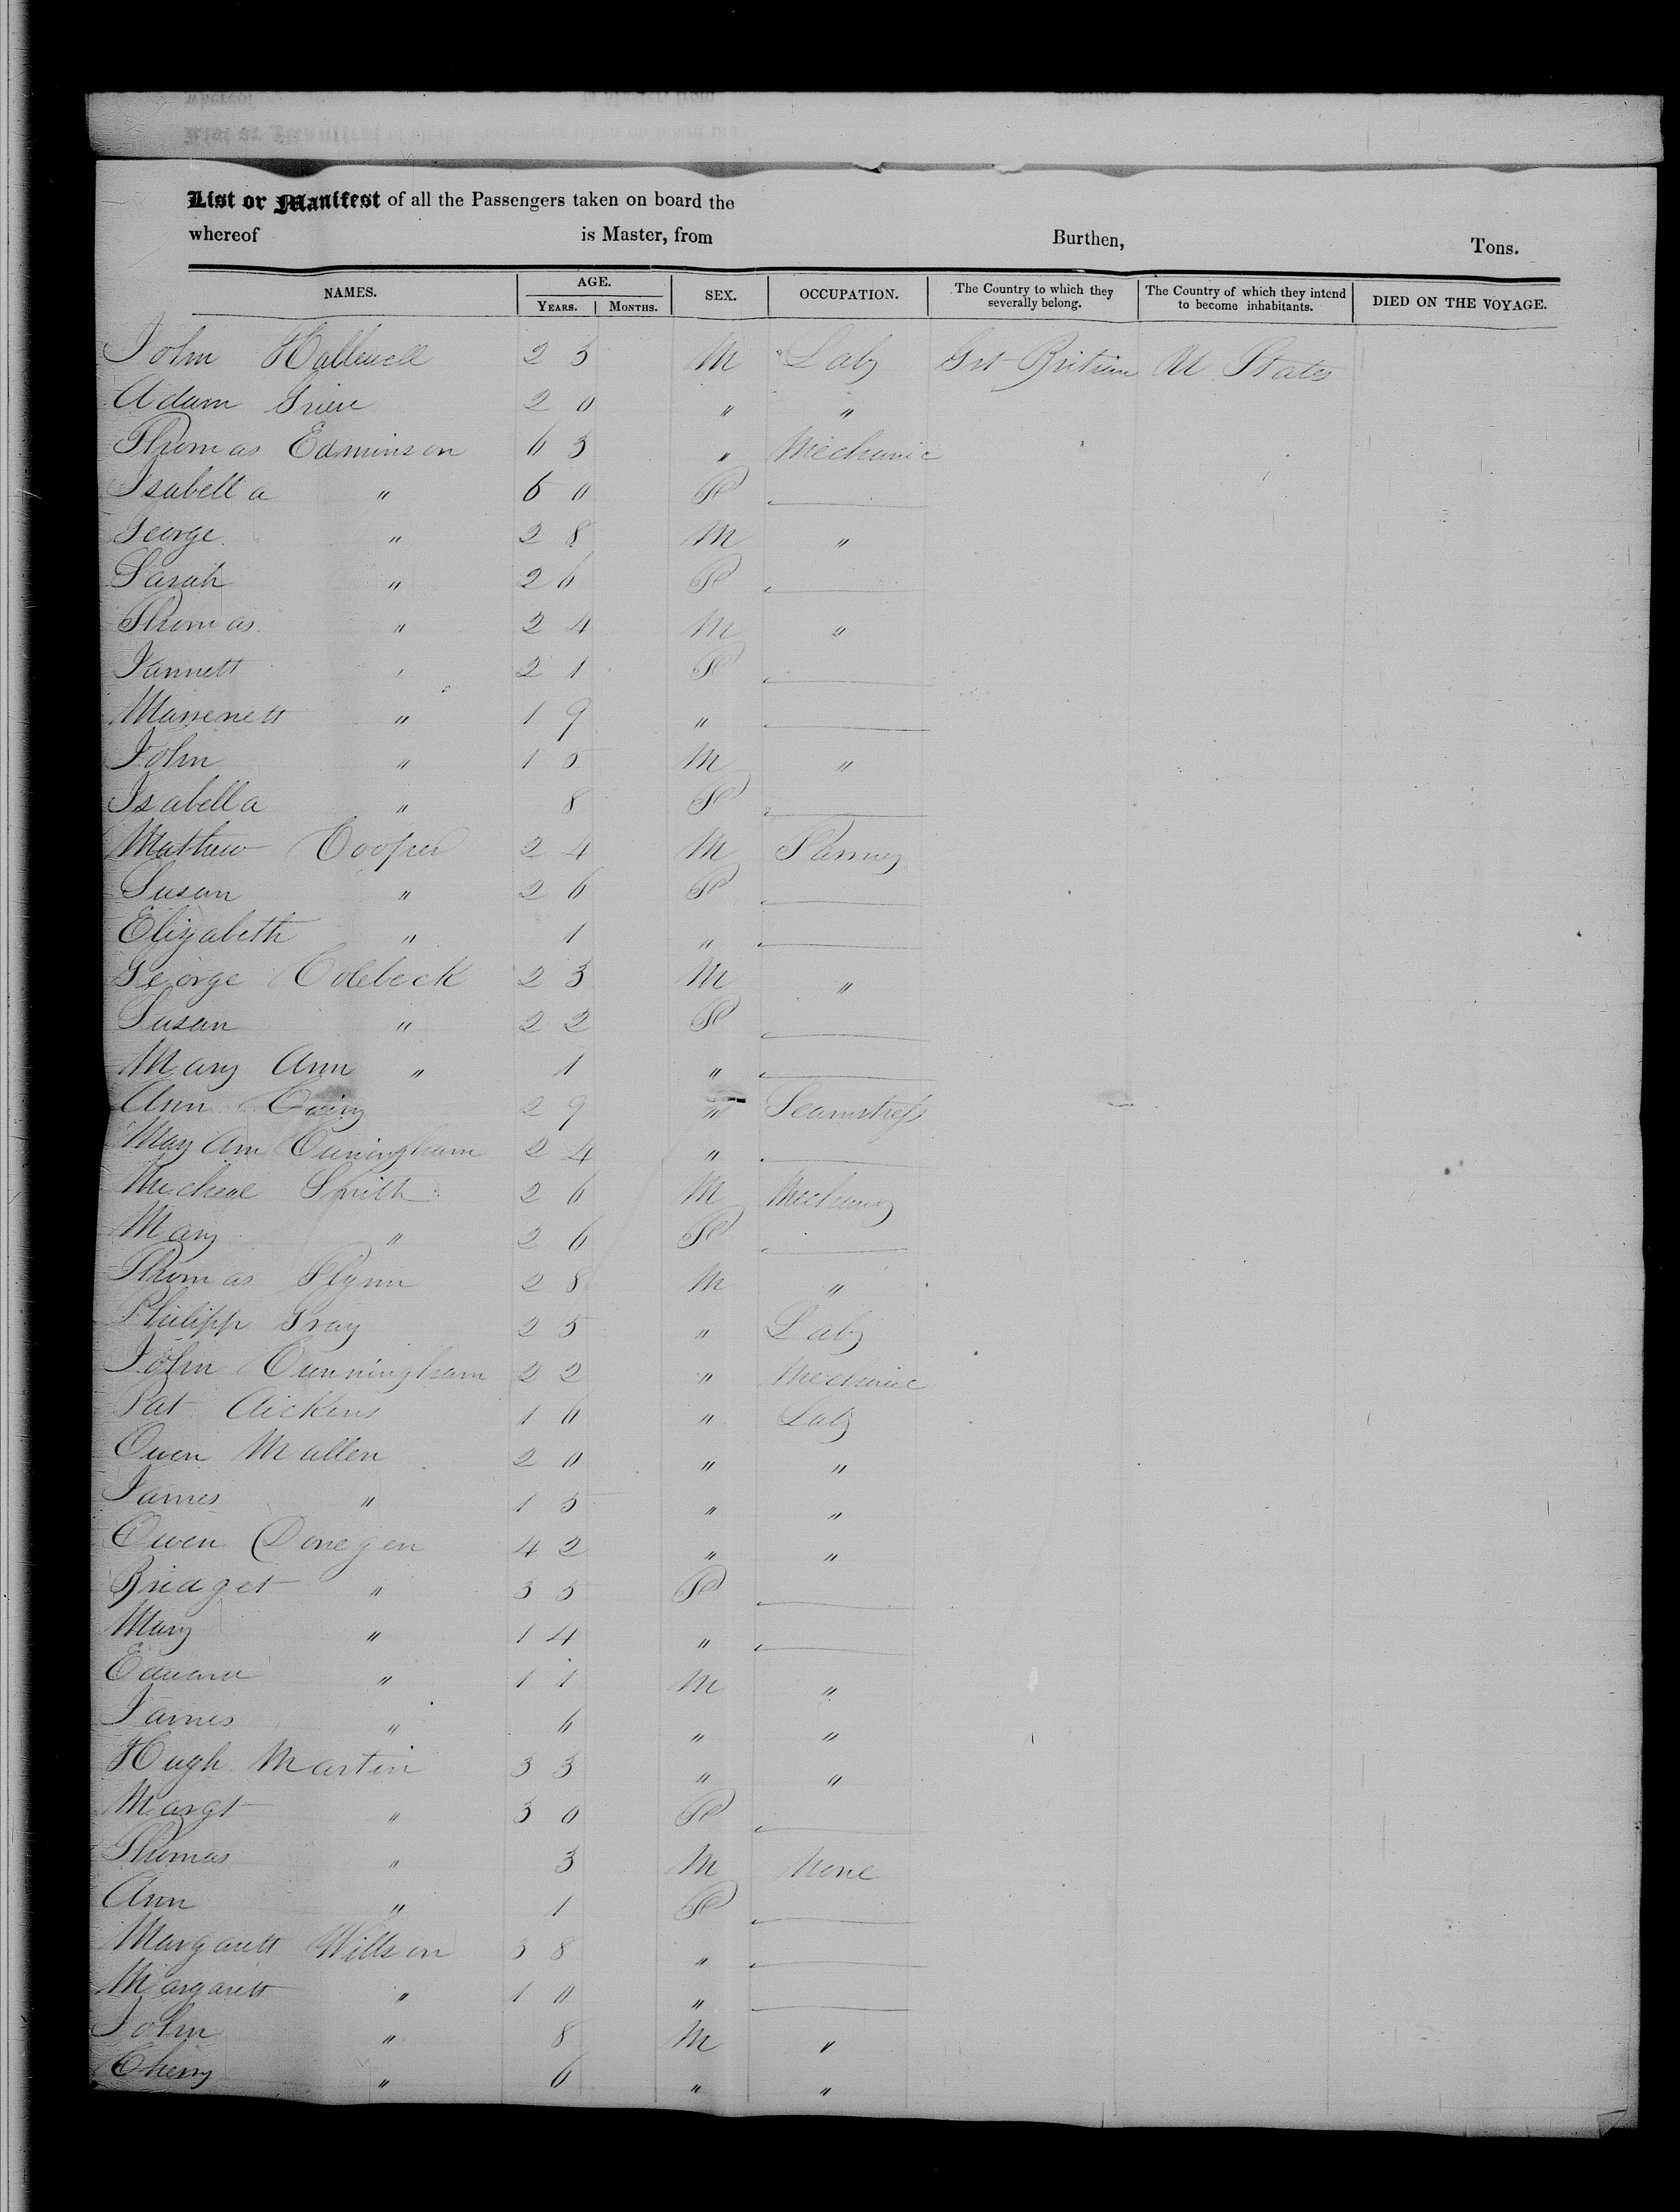 List or Manifest of all the Passengers taken on board the
whereof is Master, from Burthen, Tons.
NAMES. AGE. YEARS. MONTHS. SEX. OCCUPATION. The Country to which they severally belong. The Country of which they intend to become inhabitants. DIED ON THE VOYAGE.
John Hallewell 23 M Laby Grt Britian U States
Adam Grieve 20 " "
Thomas Edminson 63 " Mechanic
Isabella " 60 F
George " 28 M "
Sarah " 26 F
Thomas " 24 M "
Jannett " 21 F
" 19 "
John " 15 M "
Isabella " 8 F
Mathew Cooper 24 M
Susan " 26 F
Elizabeth " 1 "
George Colebeck 23 M "
Susan " 22 F
Mary Ann " 1 "
Ann 29 " Seamstress
May Ann Cuningham 24 "
Micheal Smith 26 M
Mary " 26 F
Thomas Flynn 28 M "
Philipp Gray 25 " Laby
John Cunningham 22 " Mechanic
Pat Aickens 16 " Laby
Owen Mallen 20 " "
James " 15 " "
Owen Donegen 42 " "
Bridget " 35 F
Mary " 14 "
Edward " 11 M "
James " 6 " "
Hugh Martin 33 " "
Margt " 30 F
Thomas " 3 M None
Ann " 1 F
Margarett Willson 38 "
Margarett " 10 "
John " 8 M "
" 6 " "